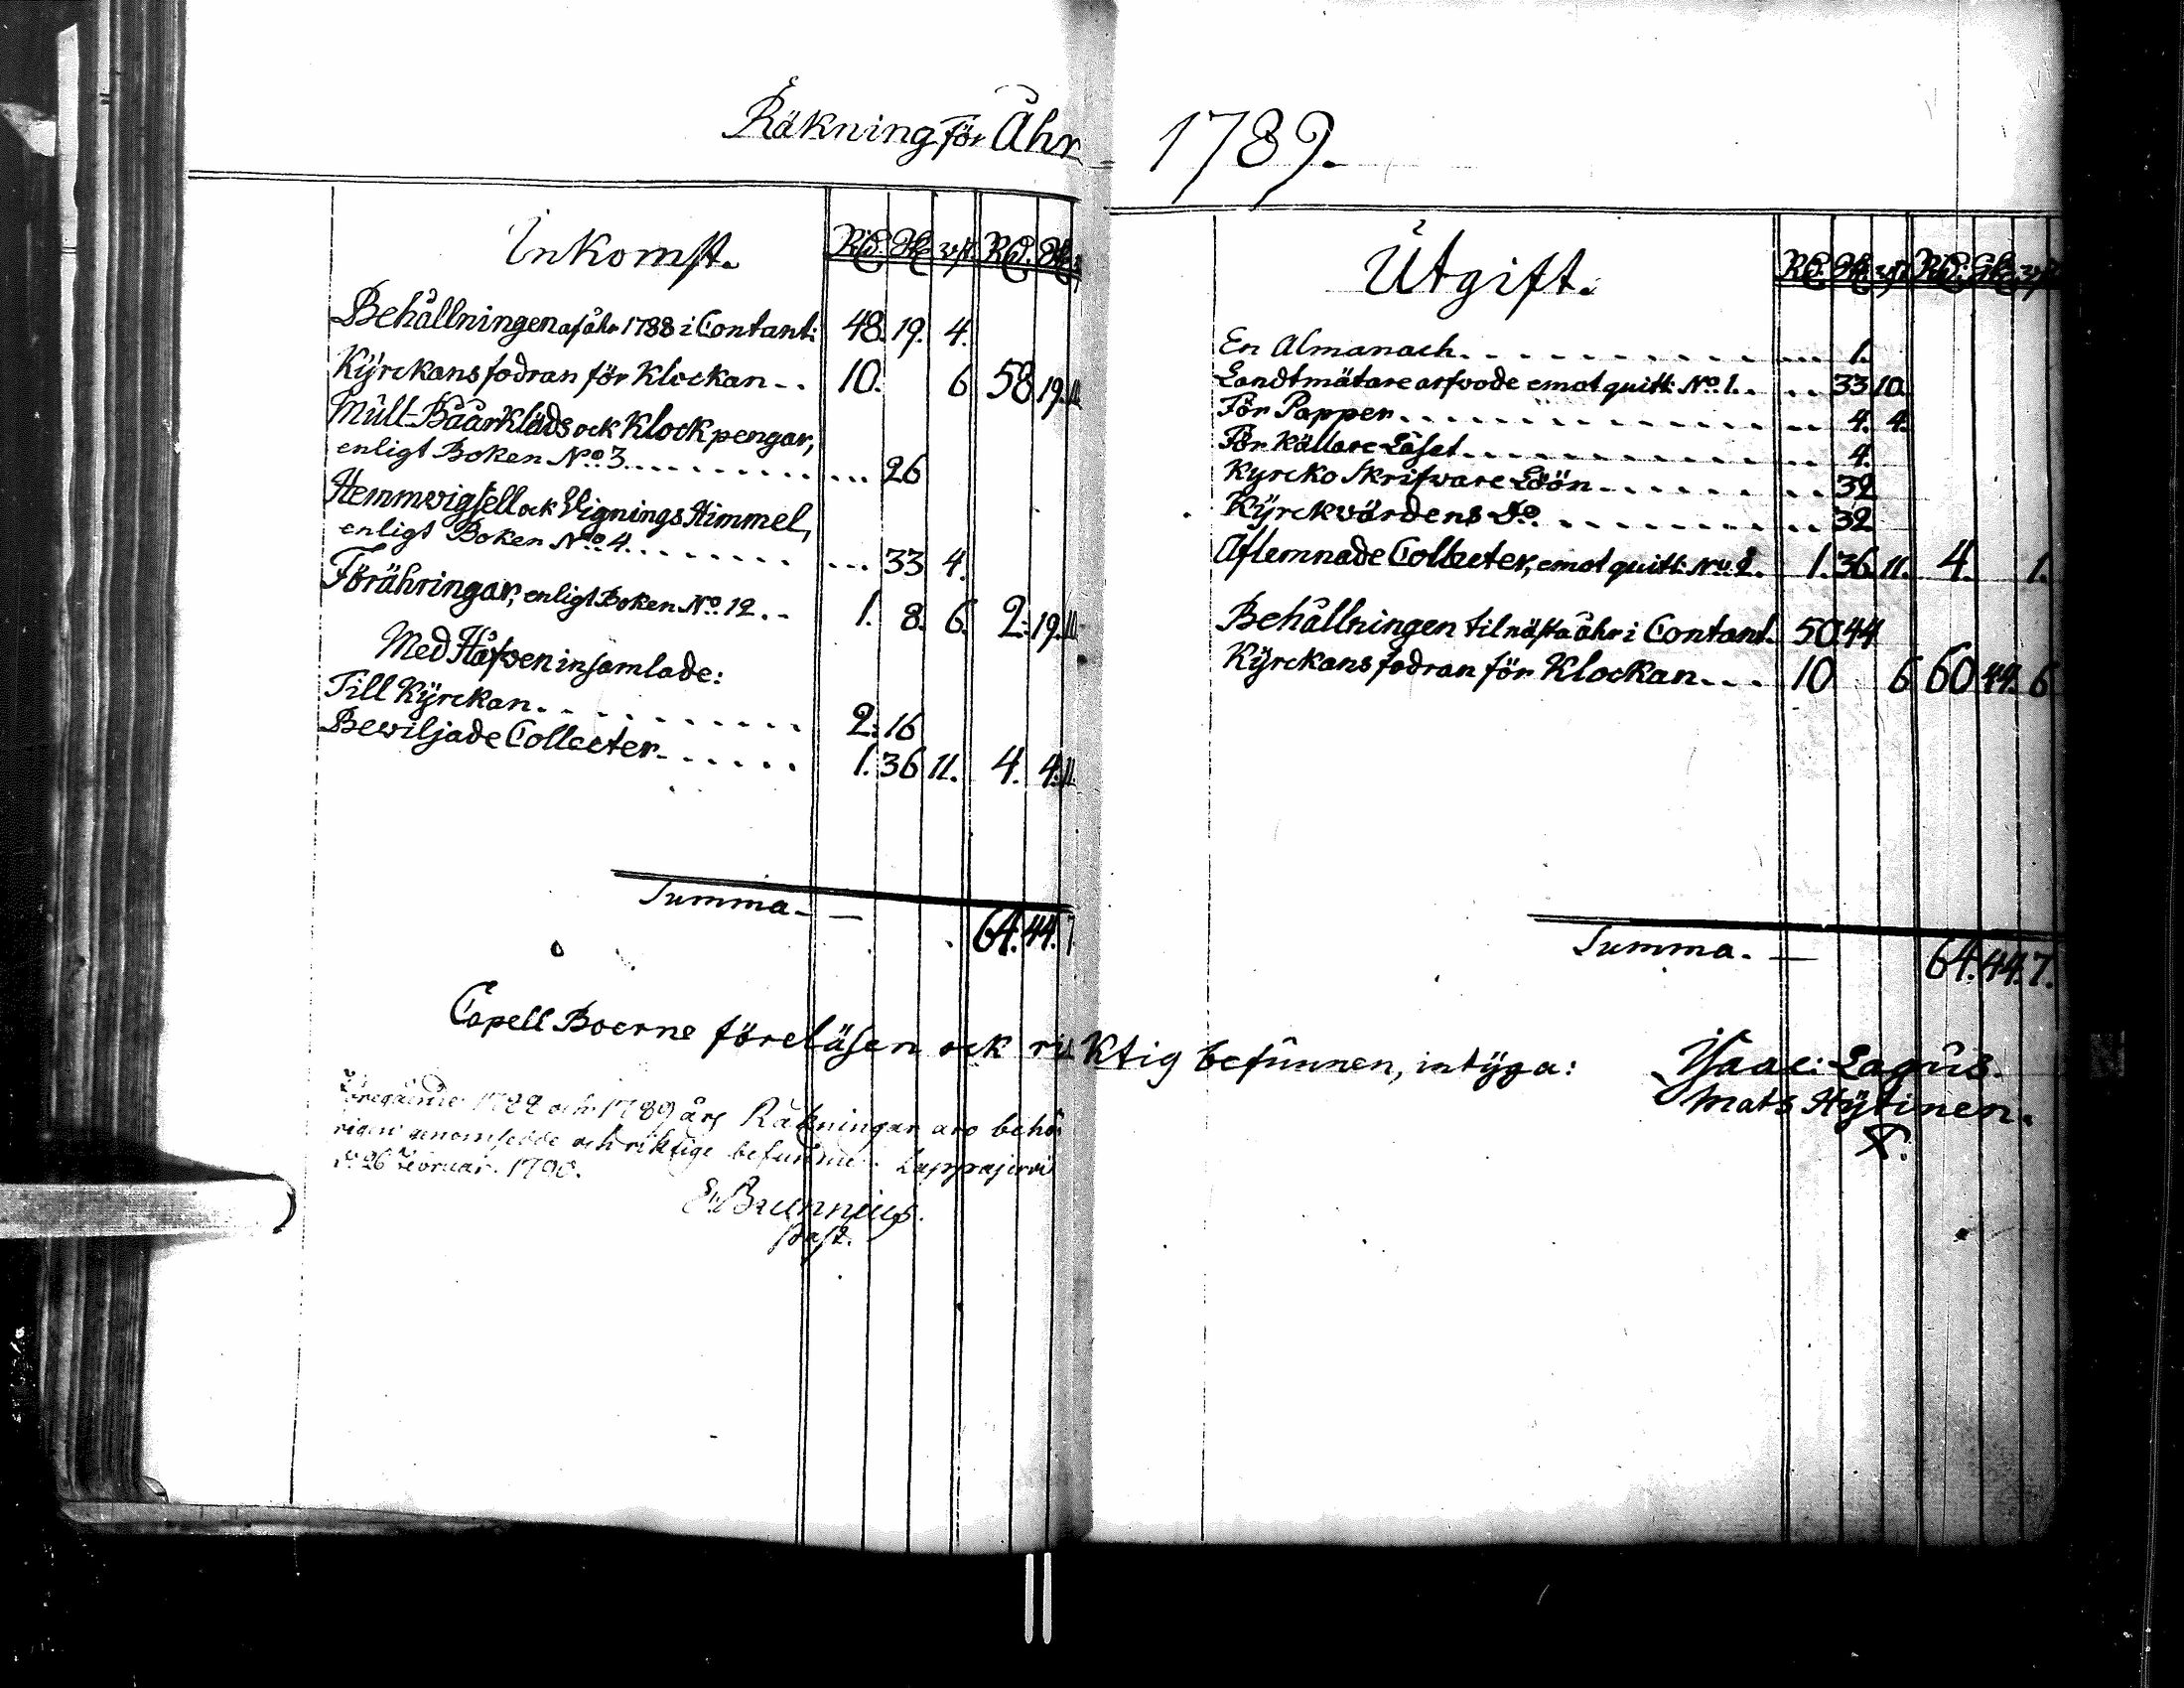 Räkning för Åhr 1789.
Inkomst. Rd. Sk. rst. Rd. Sk.
Behållningen af åhr 1788 i Contant: 48. 19. 4.
Kyrckans fodran för Klockan - . 10. 6 58 19. 11.
Mull-Båårkläds ock Klockpengar,
enligt Boken No. 3. . . . . . . . . . . . . 26
Hemmvigsell ock Vignings Himmel,
enligt Boken No. 4. . . . . . . . . . . . 33 4.
Förähringar, enligt Boken No. 12. - 1. 8. 6. 2. 19. 11.
Med Håfven insamlade:
Till Kyrckan. . . . . . . . . . . . 2. 16
Beviljade Collecter. . . . . . . 1. 36 11. 4. 4. 11.
Summa. - 64. 44. 7
Utgift. Rd. Sk. rst. Rd. Sk. rst.
En Almanach. . . . . . . . . . . . . . 1.
Landtmätare arfvode emot quitt: No. 1. . . . 33 10.
För Papper. . . . . . . . . . . . . . . . . 4. 4.
För Källare Låset. . . . . . . . . . . . . . 4.
Kyrcko Skrifvare Löön. . . . . . . . . . 32
Kyrckvärdens Do. . . . . . . . . . . . . 32
Aflemnade Collecter, emot quitt: No. 2. 1. 36. 11. 4. 1.
Behållningen til nästa åhr i Contant. 50. 44
Kyrckans fodran för Klockan. . . . 10 6 60 44. 6
Summa. - 64. 44. 7.
Capell Boerne föreläsen ock ricktig befunnen, intyga: Isaac: Lagus.
Mats Hytinen.
Föregående 1788 och 1789 års Räkningar äro behö-
rigen genomsedde och riktige befundne. Lappajervi
d. 26 Februar. 1790.
E. Brunnius.
Past.